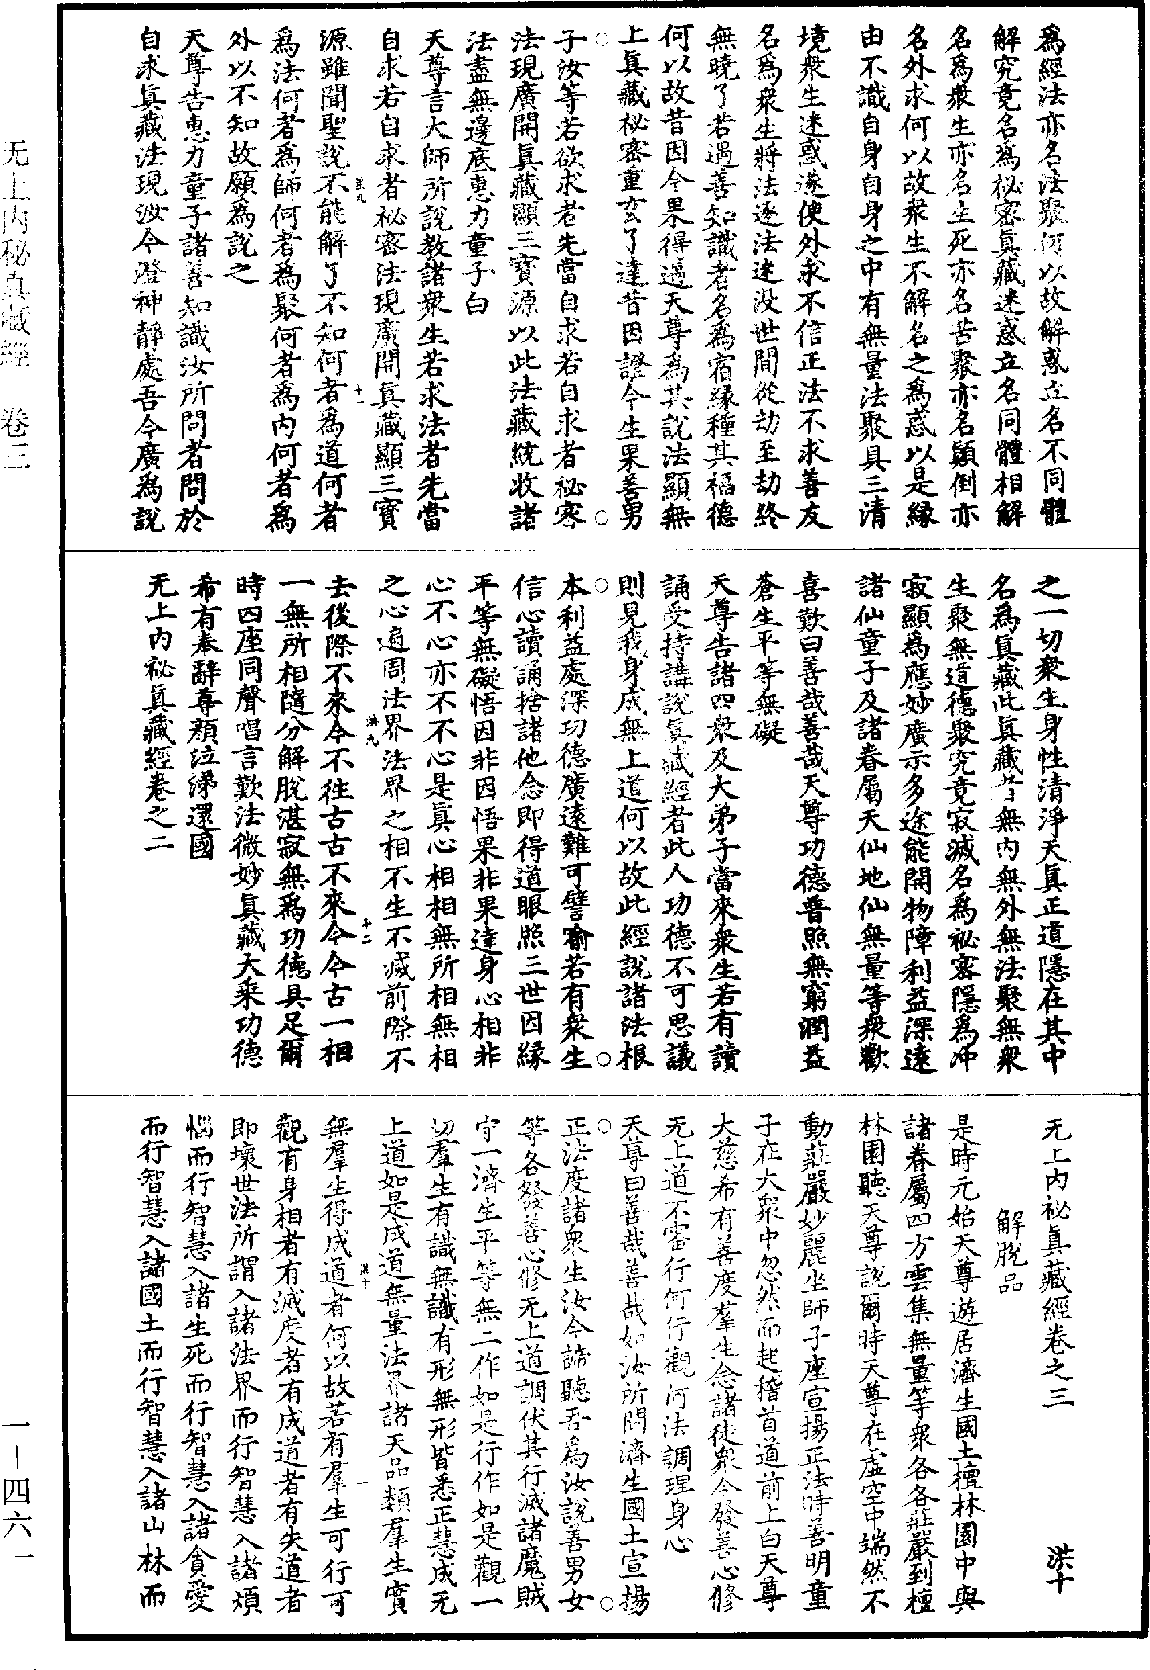 无上內秘真藏經　卷三
一—四六一
爲經法亦名法聚何以故解惑立名不同體
解究竟名爲祕密真藏迷惑立名同體相解
名爲衆生亦名生死亦名苦聚亦名顛倒亦
名外求何以故衆生不解名之爲惑以是緣
由不識自身自身之中有無量法聚具三清
境衆生迷惑遂使外求不信正法不求善友
名爲衆生將法逐法迷沒世間從劫至劫終
無曉了若遇善知識者名爲宿緣種其福德
何以故昔因今果得遇天尊爲其說法顯無
上真藏祕密重玄了達昔因證今生果善男
子汝等若欲求者先當自求若自求者秘密
法現廣開真藏顯三寶源以此法藏統收諸
法盡無邊底惠力童子白
天尊言大師所說教諸衆生若求法者先當
自求若自求者祕密法現廣開真藏顯三寶
源雖聞聖說不能解了不知何者爲道何者
爲法何者爲師何者爲聚何者爲內何者爲
外以不知故願爲說之
天尊告惠力童子諸善知識汝所問者問於
自求真藏法現汝今澄神靜處吾今廣爲說
之一切衆生身性清淨天真正道隱在其中
名爲真藏此真藏者無內無外無法聚無衆
生聚無道德聚究竟寂滅名爲祕密隱爲沖
寂顯爲應妙廣示多途能開物障利益深遠
諸仙童子及諸眷屬天仙地仙無量等衆歡
喜歎曰善哉善哉天尊功德普照無窮潤益
蒼生平等無礙
天尊告諸四衆及大弟子當來衆生若有讀
誦受持講說真藏經者此人功德不可思議
則見我身成無上道何以故此經說諸法根
本利益處深功德廣遠難可譬喻若有衆生
信心讀誦捨諸他念即得道眼照三世因緣
平等無礙悟因非因悟果非果達身心相非
心不心亦不不心是真心相相無所相無相
之心遍周法界法界之相不生不滅前際不
去後際不來今不往古古不來今今古一相
一無所相隨分解脫湛寂無爲功德具足爾
時四座同聲唱言歎法微妙真藏大乘功德
希有奉辭尊顏泣涕還國
无上內祕真藏經卷之二
无上內祕真藏經卷之三
洪十
解脫品
是時元始天尊遊居濟生國土檀林園中與
諸眷屬四方雲集無量等衆各各莊嚴到檀
林園聽天尊說爾時天尊在虛空中端然不
動莊嚴妙麗坐師子座宣揚正法時善明童
子在大衆中忽然而起稽首道前上白天尊
大慈希有善度羣生念諸徒衆今發善心修
无上道不審行何行觀何法調理身心
天尊曰善哉善哉如汝所問濟生國土宣揚
正法度諸衆生汝今諦聽吾爲汝說善男女
等各發善心修无上道調伏其行滅諸魔賊
守一濟生平等無二作如是行作如是觀一
切羣生有識無識有形無形皆悉正慧成无
上道如是成道無量法界諸天品類羣生實
無羣生得成道者何以故若有羣生可行可
觀有身相者有滅度者有成道者有失道者
即壞世法所謂入諸法界而行智慧入諸煩
惱而行智慧入諸生死而行智慧入諸貪愛
而行智慧入諸國土而行智慧入諸山林而